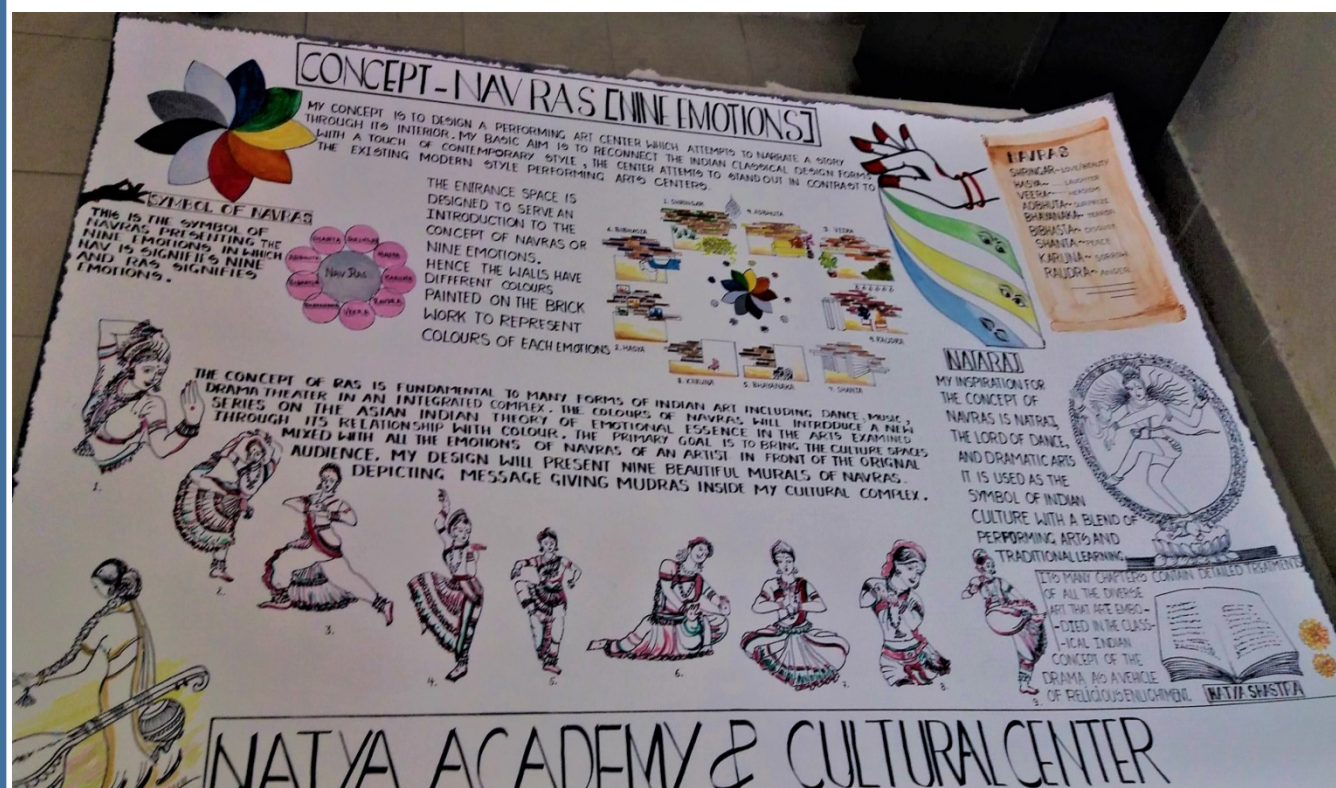 CONCEPT-NAV RAS [NINE EMOTIONS]
MY CONCEPT IS TO DESIGN A PERFORMING ART CENTER WHICH ATTEMPTS TO NARRATE A STORY
THROUGH ITS INTERIOR. MY BASIC AIM IS TO RECONNECT THE INDIAN CLASSICAL DESIGN FORMS
WITH A TOUCH OF CONTEMPORARY STYLE, THE CENTER ATTEMTS TO STAND OUT IN CONTRAST TO
THE EXISTING MODERN STYLE PERFORMING ARTS CENTERS.
SYMBOL OF NAVRAS
THIS IS THE SYMBOL OF
NAVRAS PRESENTING THE
NINE EMOTIONS IN WHICH
NAV IS SIGNIFIES NINE
AND RAS SIGNIFIES
EMOTIONS.
NAV RAS
SHANTA
VEERA
THE ENTRANCE SPACE IS
DESIGNED TO SERVE AN
INTRODUCTION TO THE
CONCEPT OF NAVRAS OR
NINE EMOTIONS.
HENCE THE WALLS HAVE
DIFFERENT COLOURS
PAINTED ON THE BRICK
WORK TO REPRESENT
COLOURS OF EACH EMOTIONS
1. SHRINGAR
9. ADBHUTA
3. VEERA
6. BIBHASTA
2. HASYA
4. RAUDRA
8. KARUNA
5. BHAYANAKA
7. SHANTA
NAVRAS
SHRINGAR~LOVE/BEAUTY
HASYA~ LAUGHTER
VEERA~ HEROISM
ADBHUTA~ SURPRISE
BHAYANAKA~ TERROR
BIBHASTA~ DISGUST
SHANTA~PEACE
KARUNA~ SORROW
RAUDRA~ ANGER
THE CONCEPT OF RAS IS FUNDAMENTAL TO MANY FORMS OF INDIAN ART INCLUDING DANCE, MUSIC,
DRAMA THEATER IN AN INTEGRATED COMPLEX. THE COLOURS OF NAVRAS WILL INTRODUCE A NEW
SERIES ON THE ASIAN INDIAN THEORY OF EMOTIONAL ESSENCE IN THE ARTS EXAMINED
THROUGH ITS RELATIONSHIP WITH COLOUR. THE PRIMARY GOAL IS TO BRING THE CULTURE SPACES
MIXED WITH ALL THE EMOTIONS OF NAVRAS OF AN ARTIST IN FRONT OF THE ORIGNAL
AUDIENCE, MY DESIGN WILL PRESENT NINE BEAUTIFUL MURALS OF NAVRAS.
DEPICTING MESSAGE GIVING MUDRAS INSIDE MY CULTURAL COMPLEX.
NATARAJ
MY INSPIRATION FOR
THE CONCEPT OF
NAVRAS IS NATRAJ,
THE LORD OF DANCE,
AND DRAMATIC ARTS
IT IS USED AS THE
SYMBOL OF INDIAN
CULTURE WITH A BLEND OF
PERFORMING ARTS AND
TRADITIONAL LEARNING
ITS MANY CHAPTERS CONTAIN DETAILED TREATMENTS
OF ALL THE DIVERSE
ART THAT ARE EMBO-
-DIED IN THE CLASS-
-ICAL INDIAN
CONCEPT OF THE
DRAMA AS A VEHICLE
OF RELIGIOUS ENLIGHTMENT.
NATYA SHASTRA
1.
2.
3.
4.
5.
6.
7.
8.
9.
NATYA ACADEMY & CULTURAL CENTER